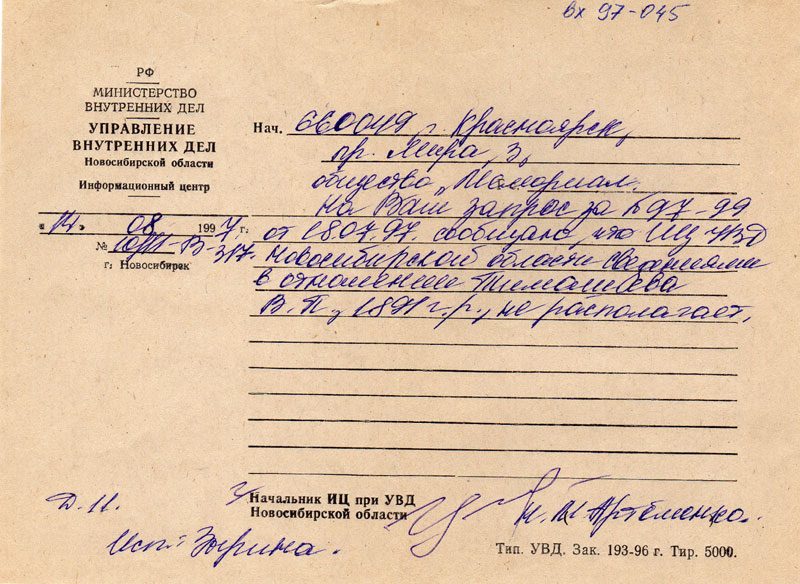 вх 97-045
РФ
МИНИСТЕРСТВО
ВНУТРЕННИХ ДЕЛ
УПРАВЛЕНИЕ
ВНУТРЕННИХ ДЕЛ
Новосибирской области
Информационный центр
«14» 08 1997 г.
№
г. Новосибирск
Нач. 660049 г. Красноярск,
пр. Мира, 3,
общество "Мемориал.
На Ваш запрос за № 97-99
от 18.07.97. сообщаю, что ИЦ УВД
Новосибирской области сведениями
в отношении Тимашева
В.П., 1891 г.р., не располагает.
Начальник ИЦ при УВД
Новосибирской области
Н.М Артёменко.
Д.Н.
Исп: Зырина.
Тип. УВД. Зак. 193-96 г. Тир. 5000.